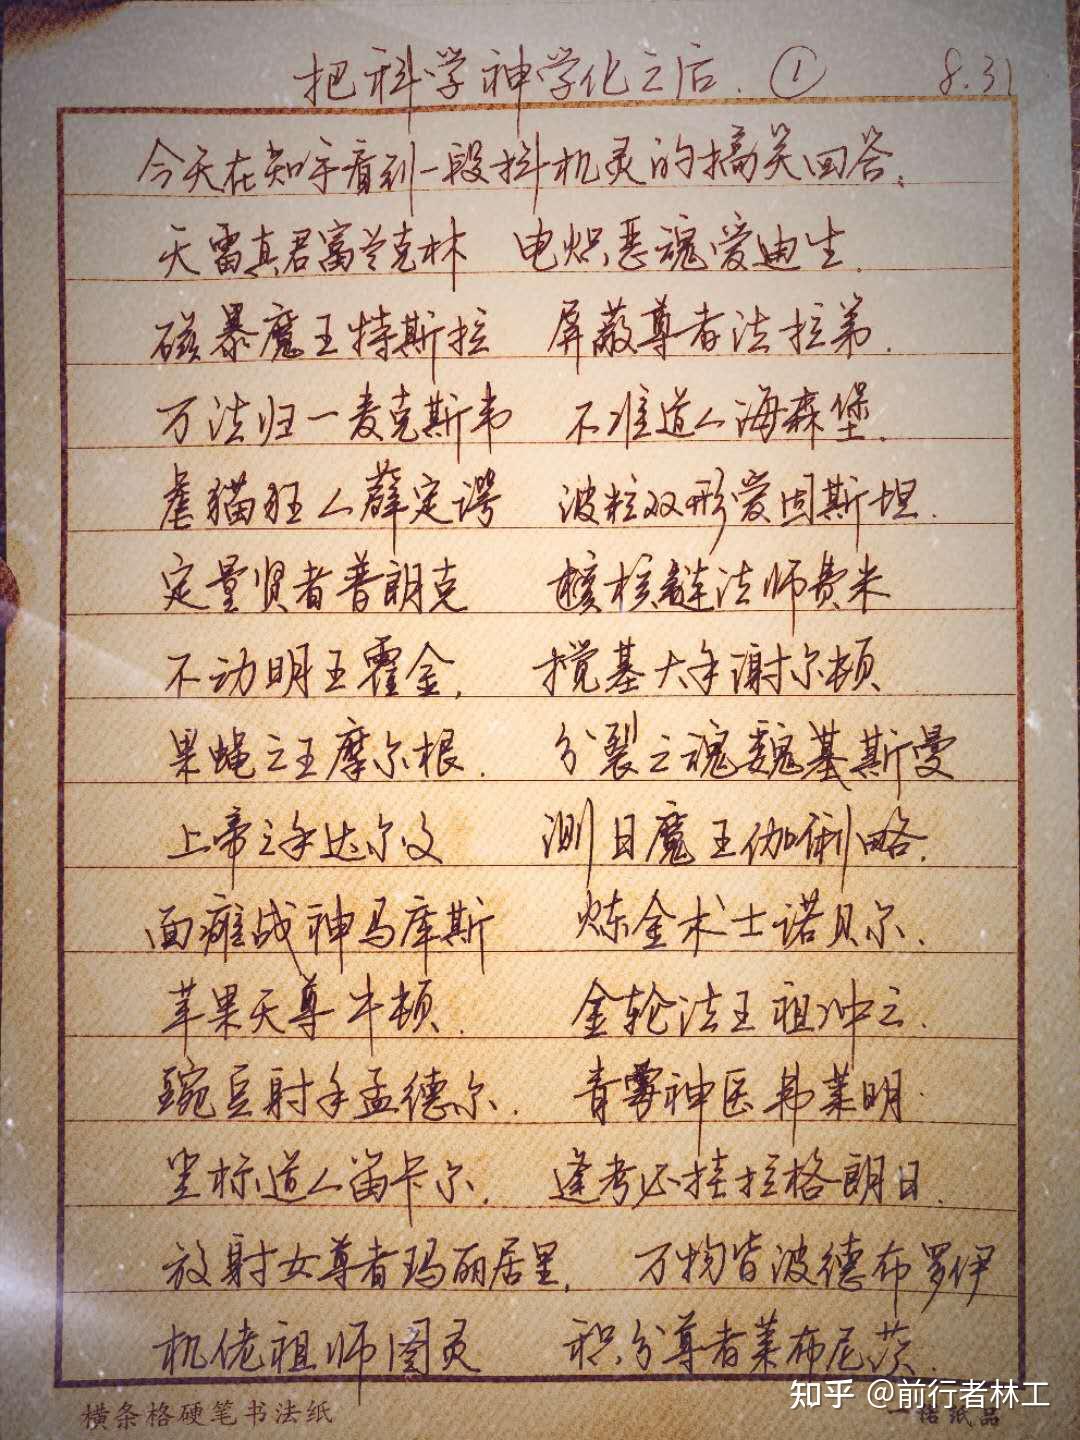 把科学神学化之后. ① 8.31
今天在知乎看到一段抖机灵的搞笑回答、
天雷真君富兰克林 电炽恶魂爱迪生.
磁暴魔王特斯拉 屏蔽尊者法拉第.
万法归一麦克斯韦 不准道人海森堡.
虐猫狂人薛定谔 波粒双形爱因斯坦.
定量贤者普朗克 核链法师费米
不动明王霍金, 搅基大手谢尔顿
果蝇之王摩尔根. 分裂之魂魏基斯曼
上帝之手达尔文 测日魔王伽俐略.
面瘫战神马库斯 炼金术士诺贝尔.
苹果天尊牛顿. 金轮法王祖冲之.
豌豆射手孟德尔. 青霉神医弗莱明.
坐标道人笛卡尔. 逢考必挂拉格朗日.
放射女尊者玛丽居里, 万物皆波德布罗伊
机佬祖师图灵 积分尊者莱布尼茨.
横条格硬笔书法纸
知乎 @前行者林工
纸品